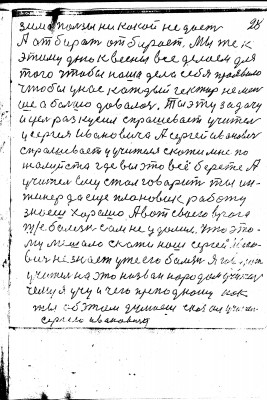 28
зимо ползы ни какой не дает
А от бират от бирает. Мы же к
этиму дню к весны все делаем для
того чтобы наша дела себя проявило
чтобы у нас каждый гектар не мен
ше а болшо довалом. Ты эту задачу
и цел разкусил спрашевает учител
у сергея Ивановича А сергей иванович
спрашевает у учителя скажи мне по
жалуста где вы это всё берете А
учител ему стал говарит ты ин-
женер да еще плановик работу
знаеш харашо А вот своего врага
ж/с болезн сам не удалил. Что это-
му мешало скажи наш сергей Ивано
вич не знает уже его болезн Я гов
учител на это назван народом учител
чему я учу и чего преподношу как
ты об этом думаеш сказал учител
сергею ивановичу